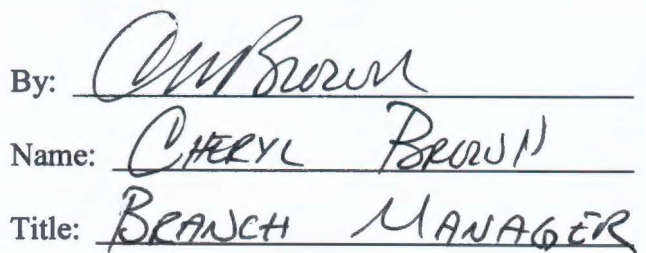 By: CMBrown
Name: CHERYL BROWN
Title: BRANCH MANAGER